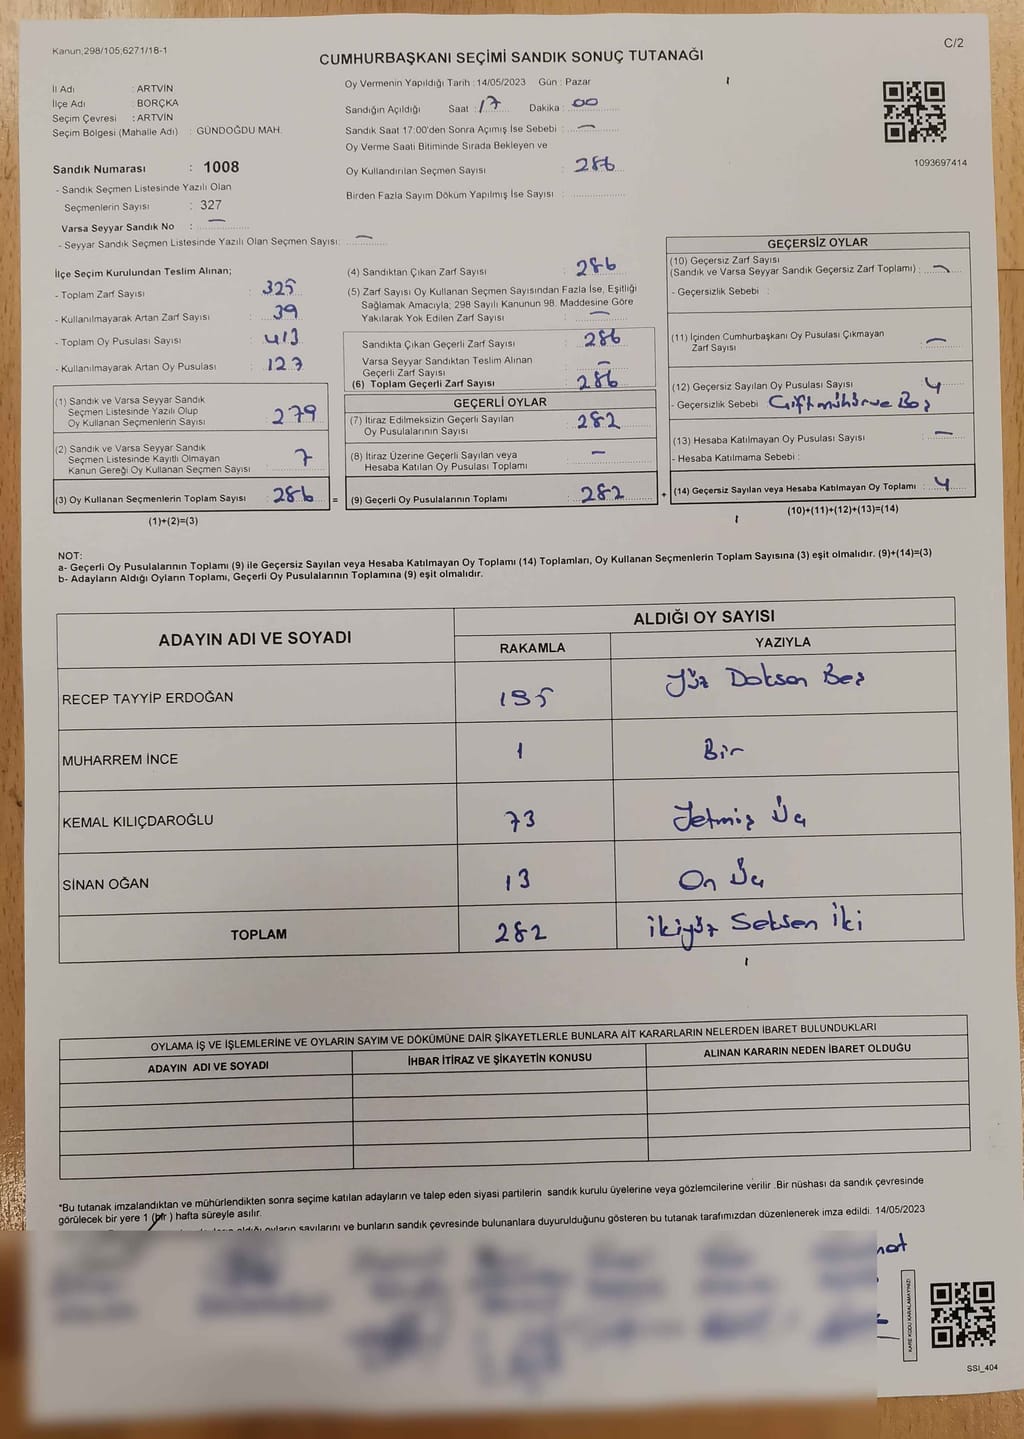 Kanun;298/105;6271/18-1
C/2
CUMHURBAŞKANI SEÇİMİ SANDIK SONUÇ TUTANAĞI
İl Adı : ARTVİN
İlçe Adı : BORÇKA
Seçim Çevresi : ARTVİN
Seçim Bölgesi (Mahalle Adı) : GÜNDOĞDU MAH.
Sandık Numarası : 1008
- Sandık Seçmen Listesinde Yazılı Olan
Seçmenlerin Sayısı : 327
Varsa Seyyar Sandık No : —
- Seyyar Sandık Seçmen Listesinde Yazılı Olan Seçmen Sayısı: —
Oy Vermenin Yapıldığı Tarih : 14/05/2023 Gün : Pazar
Sandığın Açıldığı Saat : 17 Dakika : 00
Sandık Saat 17:00'den Sonra Açımış İse Sebebi : —
Oy Verme Saati Bitiminde Sırada Bekleyen ve
Oy Kullandırılan Seçmen Sayısı : 286
Birden Fazla Sayım Döküm Yapılmış İse Sayısı :
1093697414
İlçe Seçim Kurulundan Teslim Alınan;
- Toplam Zarf Sayısı : 325
- Kullanılmayarak Artan Zarf Sayısı : 39
- Toplam Oy Pusulası Sayısı : 413
- Kullanılmayarak Artan Oy Pusulası : 127
(1) Sandık ve Varsa Seyyar Sandık
Seçmen Listesinde Yazılı Olup
Oy Kullanan Seçmenlerin Sayısı : 279
(2) Sandık ve Varsa Seyyar Sandık
Seçmen Listesinde Kayıtlı Olmayan
Kanun Gereği Oy Kullanan Seçmen Sayısı : 7
(3) Oy Kullanan Seçmenlerin Toplam Sayısı : 286 =
(1)+(2)=(3)
(4) Sandıktan Çıkan Zarf Sayısı : 286
(5) Zarf Sayısı Oy Kullanan Seçmen Sayısından Fazla İse, Eşitliği
Sağlamak Amacıyla; 298 Sayılı Kanunun 98. Maddesine Göre
Yakılarak Yok Edilen Zarf Sayısı : —
Sandıkta Çıkan Geçerli Zarf Sayısı : 286
Varsa Seyyar Sandıktan Teslim Alınan
Geçerli Zarf Sayısı : —
(6) Toplam Geçerli Zarf Sayısı : 286
GEÇERLİ OYLAR
(7) İtiraz Edilmeksizin Geçerli Sayılan
Oy Pusulalarının Sayısı : 282
(8) İtiraz Üzerine Geçerli Sayılan veya
Hesaba Katılan Oy Pusulası Toplamı : —
(9) Geçerli Oy Pusulalarının Toplamı : 282 +
GEÇERSİZ OYLAR
(10) Geçersiz Zarf Sayısı
(Sandık ve Varsa Seyyar Sandık Geçersiz Zarf Toplamı) : —
- Geçersizlik Sebebi :
(11) İçinden Cumhurbaşkanı Oy Pusulası Çıkmayan
Zarf Sayısı : —
(12) Geçersiz Sayılan Oy Pusulası Sayısı : 4
- Geçersizlik Sebebi : Çift mühür ve Boş
(13) Hesaba Katılmayan Oy Pusulası Sayısı : —
- Hesaba Katılmama Sebebi :
(14) Geçersiz Sayılan veya Hesaba Katılmayan Oy Toplamı : 4
(10)+(11)+(12)+(13)=(14)
NOT:
a- Geçerli Oy Pusulalarının Toplamı (9) ile Geçersiz Sayılan veya Hesaba Katılmayan Oy Toplamı (14) Toplamları, Oy Kullanan Seçmenlerin Toplam Sayısına (3) eşit olmalıdır. (9)+(14)=(3)
b- Adayların Aldığı Oyların Toplamı, Geçerli Oy Pusulalarının Toplamına (9) eşit olmalıdır.
ADAYIN ADI VE SOYADI
ALDIĞI OY SAYISI
RAKAMLA YAZIYLA
RECEP TAYYİP ERDOĞAN 195 Yüz Doksan Beş
MUHARREM İNCE 1 Bir
KEMAL KILIÇDAROĞLU 73 Yetmiş Üç
SİNAN OĞAN 13 On Üç
TOPLAM 282 İkiyüz Seksen İki
OYLAMA İŞ VE İŞLEMLERİNE VE OYLARIN SAYIM VE DÖKÜMÜNE DAİR ŞİKAYETLERLE BUNLARA AİT KARARLARIN NELERDEN İBARET BULUNDUKLARI
ADAYIN ADI VE SOYADI İHBAR İTİRAZ VE ŞİKAYETİN KONUSU ALINAN KARARIN NEDEN İBARET OLDUĞU
*Bu tutanak imzalandıktan ve mühürlendikten sonra seçime katılan adayların ve talep eden siyasi partilerin sandık kurulu üyelerine veya gözlemcilerine verilir .Bir nüshası da sandık çevresinde
görülecek bir yere 1 (bir ) hafta süreyle asılır.
aldığı oyların sayılarını ve bunların sandık çevresinde bulunanlara duyurulduğunu gösteren bu tutanak tarafımızdan düzenlenerek imza edildi. 14/05/2023
KARE KODU KARALAMAYINIZ!
SSI_404